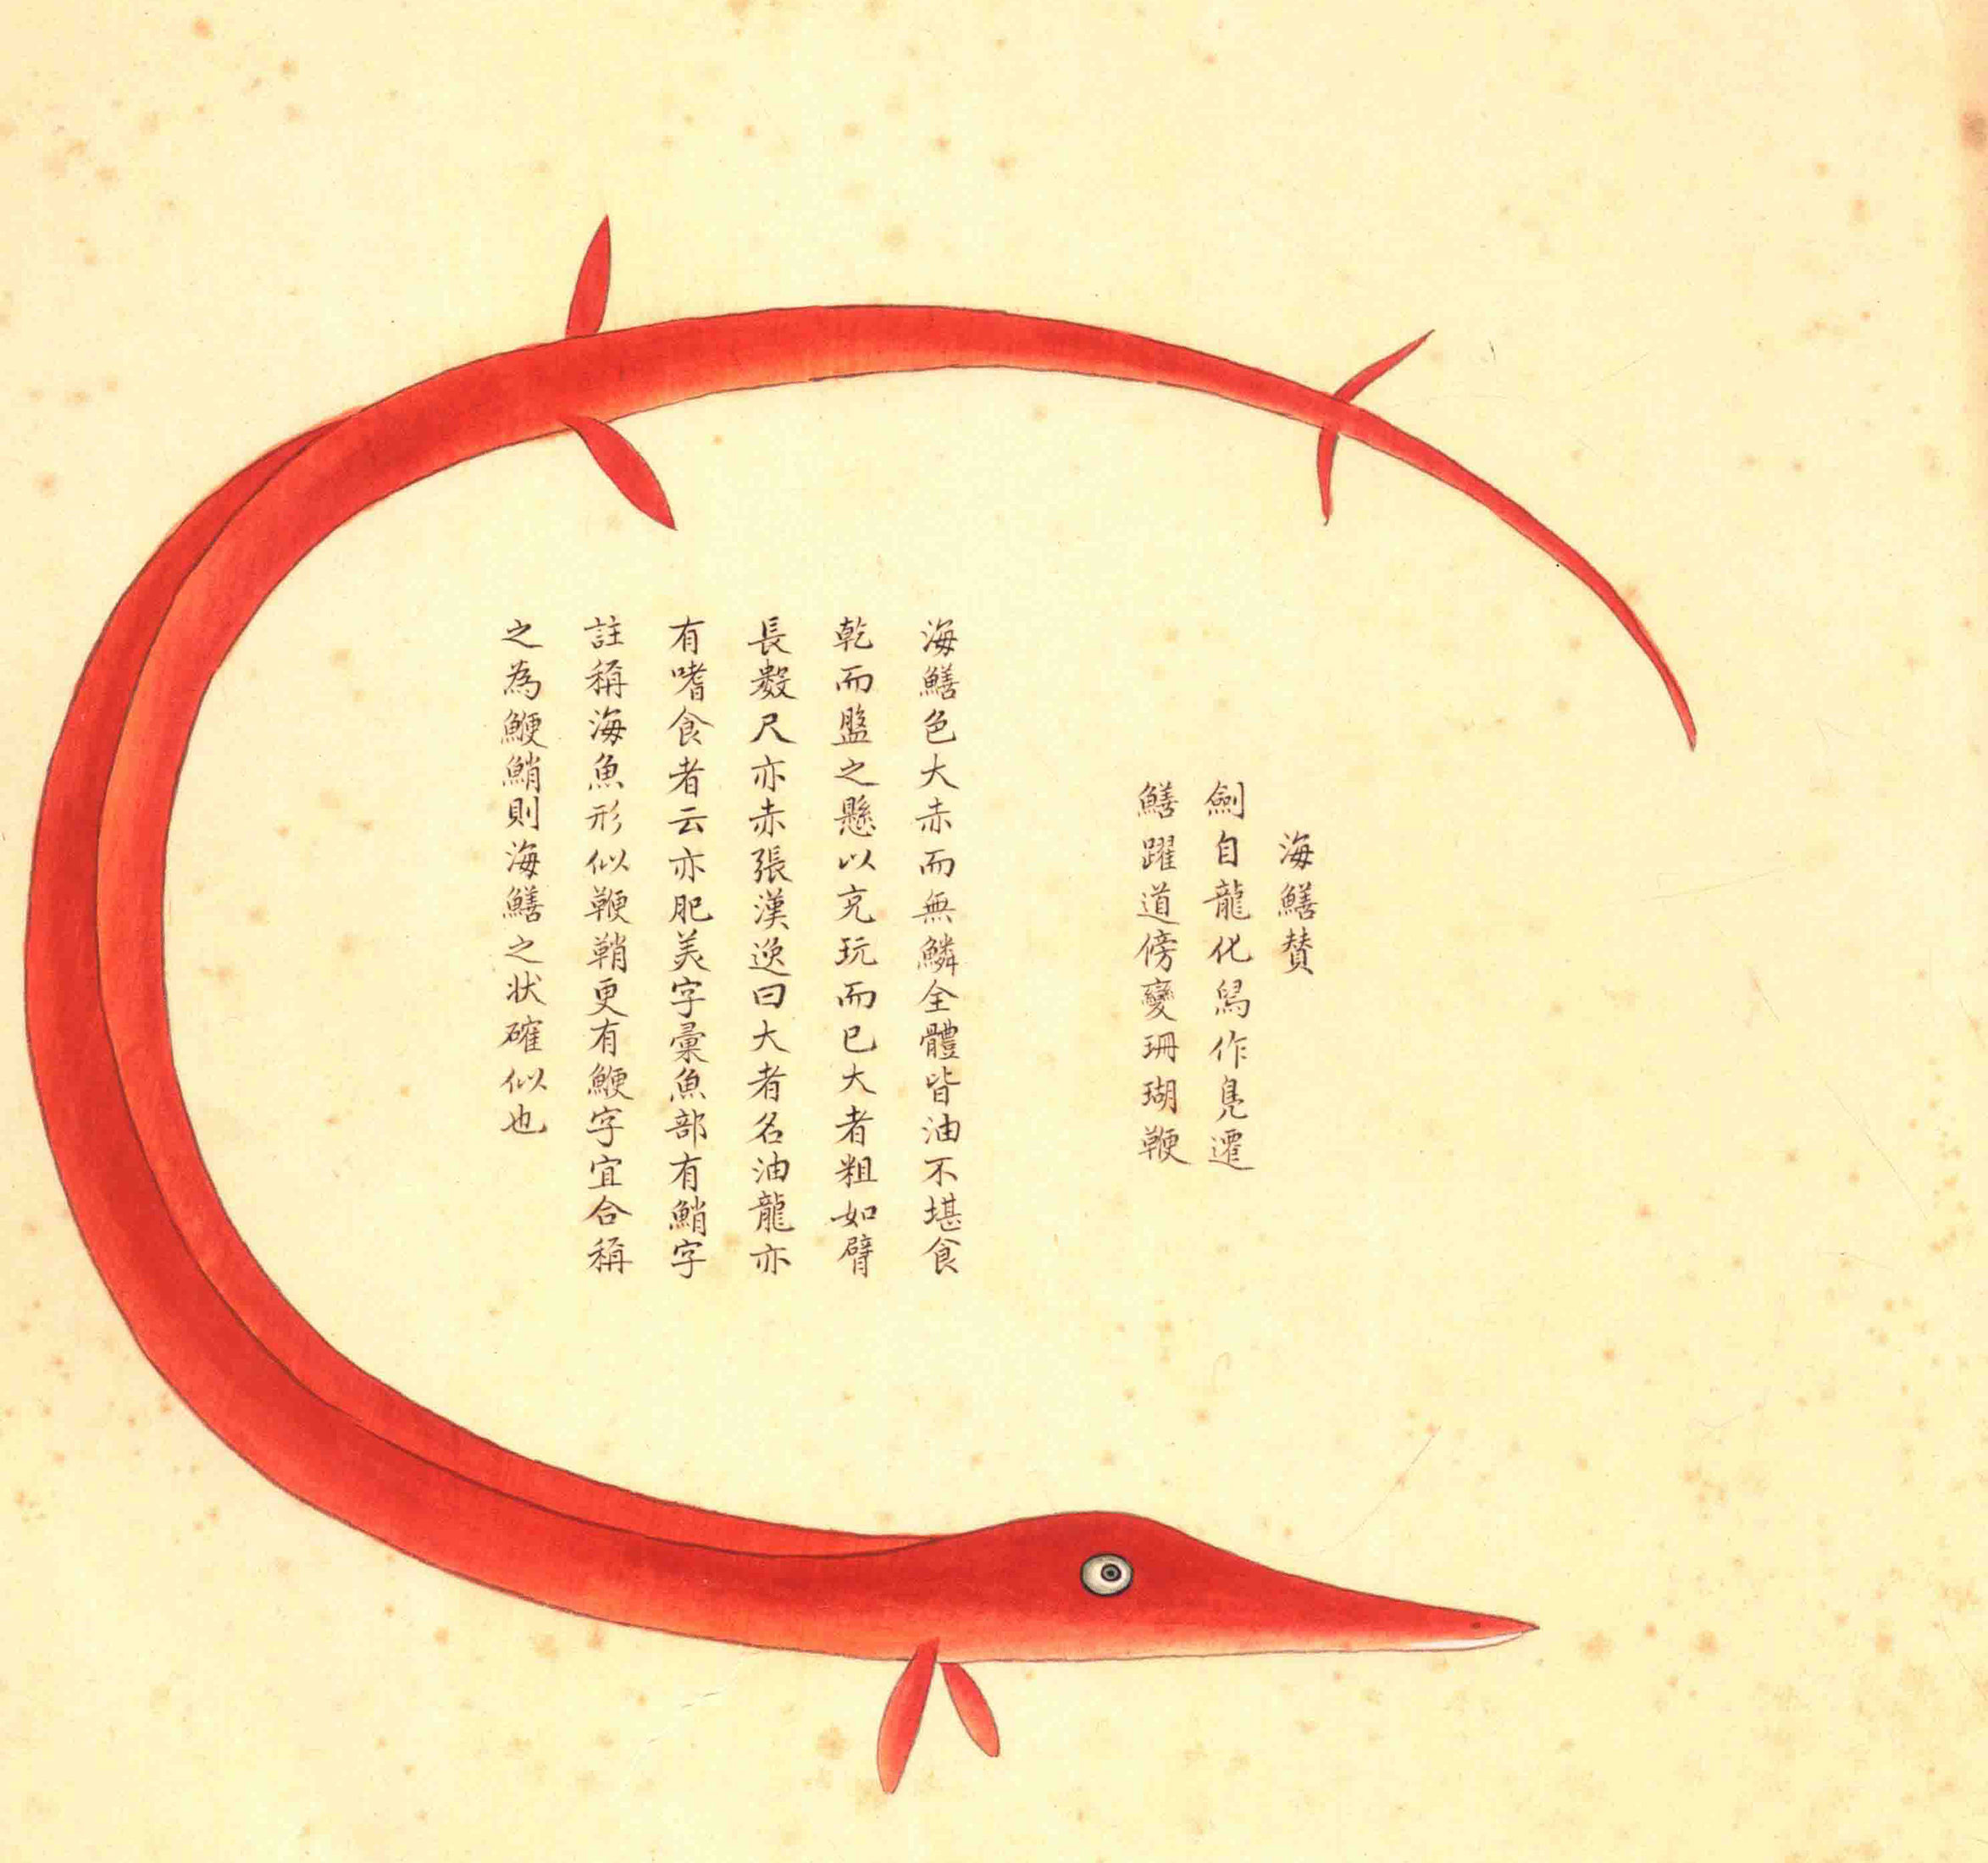 海鱔賛
劍自龍化舃作鳬遷
鱔躍道傍變珊瑚鞭
海鱔色大赤而無鱗全體皆油不堪食
乾而盬之懸以充玩而已大者粗如臂
長數尺亦赤張漢逸曰大者名油龍亦
有嗜食者云亦肥美字彙魚部有鮹字
註稱海魚形似鞭鞘更有鯾字宜合稱
之為鯾鮹則海鱔之状確似也